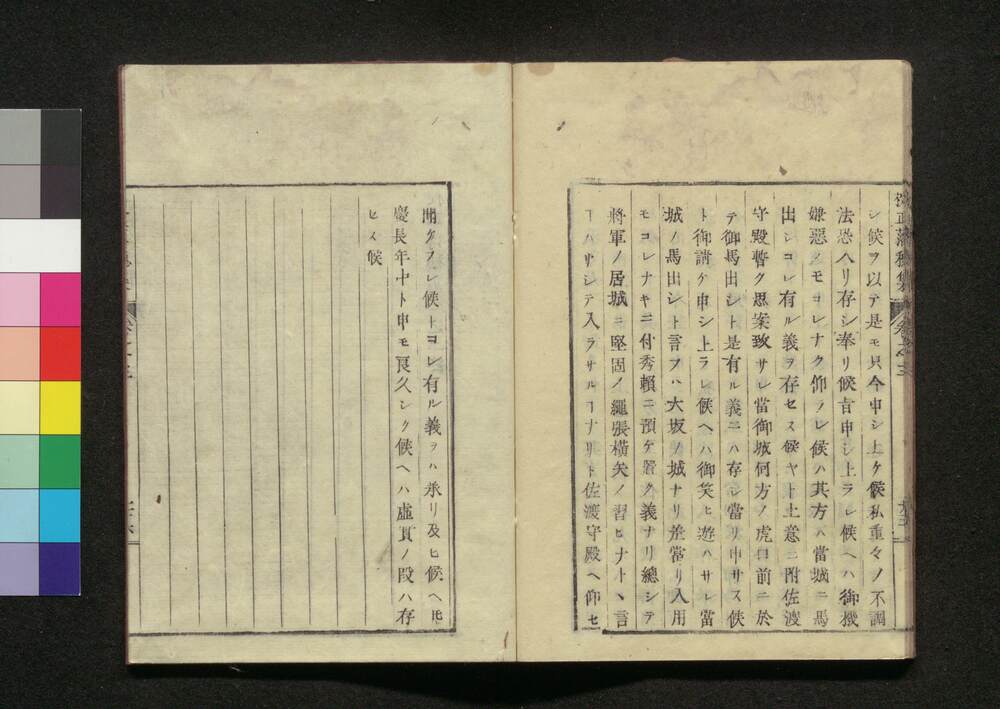 シ候ヲ以テ是モ只今申シ上ケ候私重々ノ不調
法恐入リ存シ奉リ候旨申シ上ラレ候ヘハ御機
嫌惡クモコレナク仰ラレ候ハ其方ハ當城ニ馬
出シコレ有ル義ヲ存セス候ヤト上意ニ附佐渡
守殿暫ク思案致サレ當御城何方ノ虎口前ニ於
テ御馬出シト是有ル義ニハ存シ當リ申サス候
ト御請ケ申シ上ラレ候ヘハ御笑ヒ遊ハサレ當
城ノ馬出シト言フハ大坂ノ城ナリ差當リ入用
モコレナキニ付秀頼ニ預ケ置ク義ナリ總シテ
將軍ノ居城ニ堅固ノ繩張橫矢ノ習ヒナト丶言
ヿハサシテ入ラサルヿナリト佐渡守殿ヘ仰セ
聞ケラレ候トコレ有ル義ヲハ承リ及ヒ候ヘ𪜈
慶長年中ト申モ良久シク候ヘハ虛實ノ段ハ存
セス候